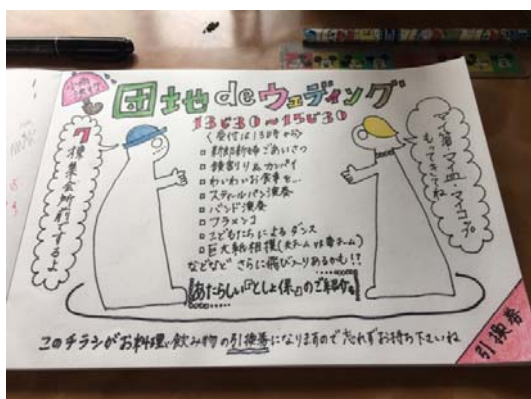 小雨決行
団地deウェディング
13じ30〜15じ30
(受付は13時から)
新郎新婦ごあいさつ
鏡割り&カンパイ
わいわいお食事を…
スティールパン演奏
バンド演奏
フラメンコ
こどもたちによるダンス
巨大紙相撲
などなど さらに飛び入りあるかも!?
あたらしい『としょ係』のご紹介も
7棟集会所前でするよ
マイ箸・マイ皿・マイコップ
もってきてね
このチラシがお料理・飲み物の引換券になりますので忘れずお持ち下さいね
引換券